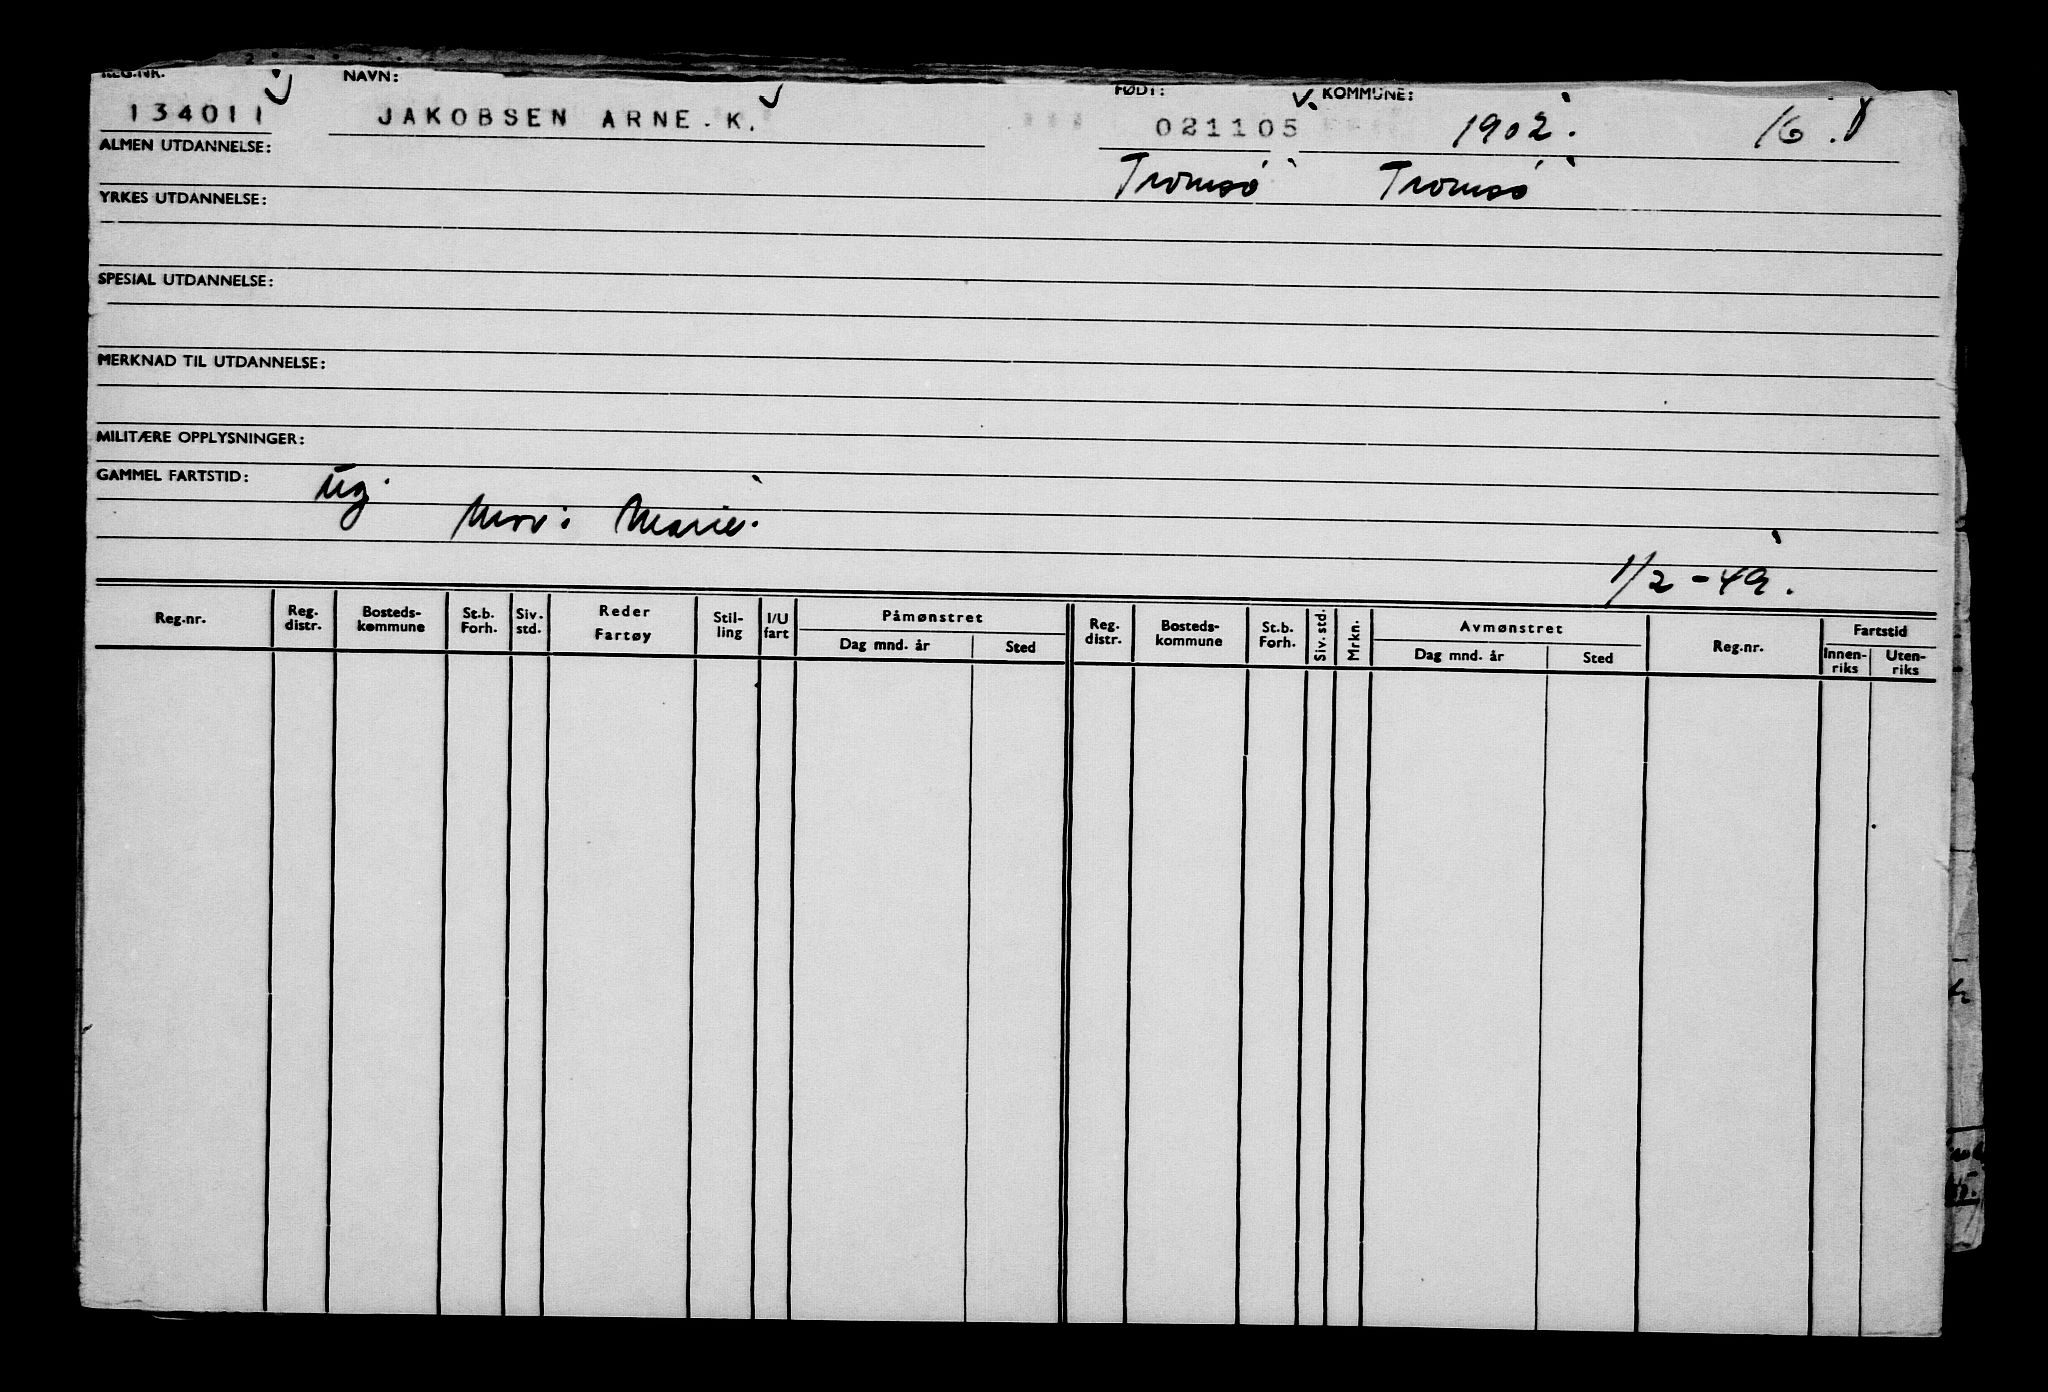 REG.NR. NAVN: FØDT: KOMMUNE:
134011 JAKOBSEN ARNE.K. 021105 1902. 16.
ALMEN UTDANNELSE: Tromsø Tromsø
YRKES UTDANNELSE:
SPESIAL UTDANNELSE:
MERKNAD TIL UTDANNELSE:
MILITÆRE OPPLYSNINGER:
GAMMEL FARTSTID: ug.
Mor: Marie.
1/2-49.
Reg.nr. Reg. distr. Bosteds-kommune St.b. Forh. Siv. std. Reder Fartøy Stil-ling I/U fart Påmønstret Dag mnd. år Sted Reg. distr. Bosteds-kommune St.b. Forh. Siv. std. Mrkn. Avmønstret Dag mnd. år Sted Reg.nr. Fartstid Innen-riks Uten-riks